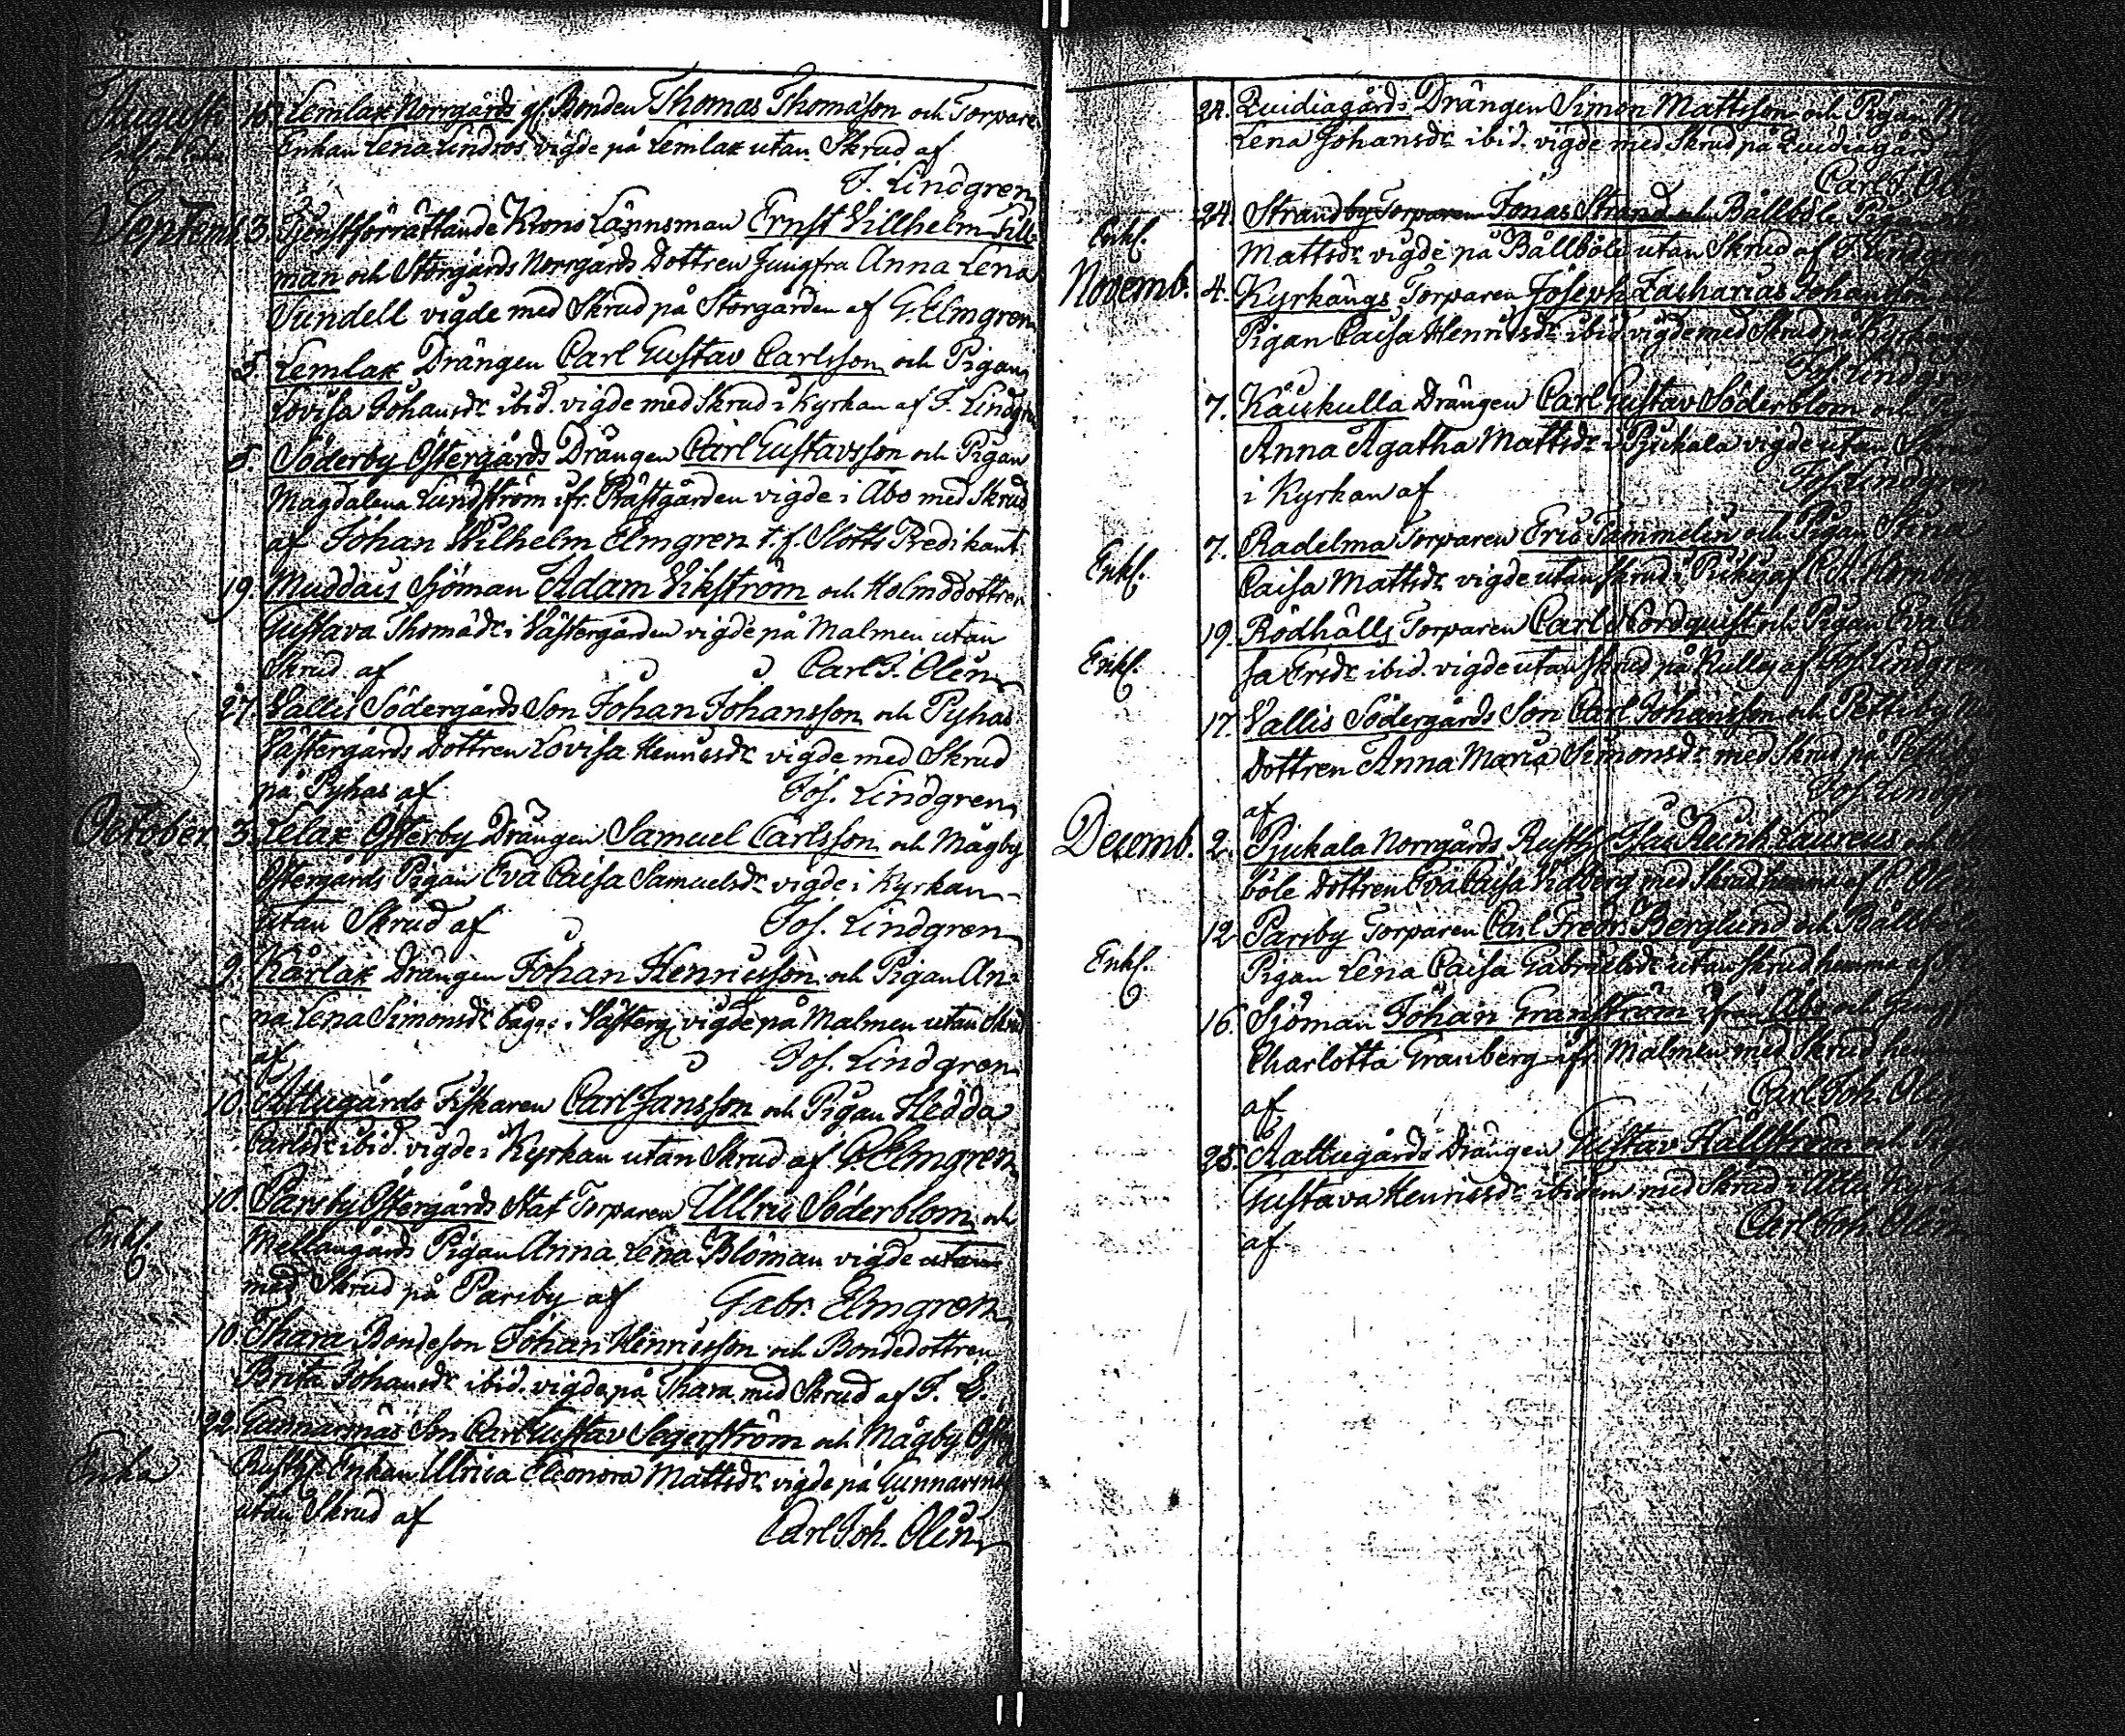 Augusti 16. Lemlax Norrgårds gf. Bonden Thomas Thomason och Torpare
Enkan Lena Lindros vigde på Lemlax utan Skrud af
F. Lindgren
Septemb 3. Tjenstförrättande Krono Länsman Ernst Villhelm Lill-
man och Storgårds Norrgårds Dottren Jungfru Anna Lena
Sundell vigde med Skrud på Storgården af G. Elmgren
5. Lemlax Drängen Carl Gustav Carlsson och Pigan
Lovisa Johansdr ibid. vigde med Skrud i Kyrkan af F. Lindgr
5. Söderby Östergårds Drängen Carl Gustavsson och Pigan
Magdalena Lundström ifr. Prästgården vigde i Åbo med Skrud
af Johan Wilhelm Elmgren t. f. Slotts Predikant
19. Muddais Sjöman Adam Vikström och Holmddottren
Gustava Thomädr i Västergården vigde på Malmen utan
Skrud af Carl J. Olin
27. Vallis Södergårds Son Johan Johansson och Pyhas
Västergårds Dottren Lovisa Henricsdr vigde med Skrud
på Pyhas af Jos. Lindgren
October 3. Lelax Österby Drängen Samuel Carlsson och Mågby
Östergårds Pigan Eva Caisa Samuelsdr vigde i Kyrkan
utan Skrud af Jos. Lindgren
9. Kårlax Drängen Johan Henricsson och Pigan An-
na Lena Simonsdr bägge i Västerg. vigde på Malmen utan Skrud
af Jos. Lindgren
10. Attugårds Fiskaren Carl Jansson och Pigan Hedda
Carlsdr ibid. vigde i Kyrkan utan Skrud af G. Elmgren
10. Parsby Östergårds Stat Torparen Ullric Söderblom och
Enkl. Mellangårds Pigan Anna Lena Bloman vigde utan
med Skrud på Parsby af Gabr. Elmgren
10. Thara Bondeson Johan Henricsson och Bondedottren
Brita Johansdr ibid. vigde på Thara med Skrud af
22. Gunnarnäs Son Carl Gustav Segerström och Mågby Österg
Enka Rusth. Enkan Ulrica Eleonora Mattsdr vigde på Gunnarnäs
utan Skrud af Carl Joh. Olin
24. Quidiagårds Drängen Simon Mattsson och Pigan
Lena Johansdr ibid. vigde med Skrud på Quidiagård
Carl J. Olin
24. Strandby Torparen Jonas Strand och Bållböle Pigan
Enkl. Mattsdr vigde på Bållböle utan Skrud af F. Lindgr
Novemb. 4. Kyrkängs Torparen Joseph Zacharias Johansson
Pigan Caisa Henricsdr ibid vigde med Skrud på Kyrkäng
Jos. Lindgren
7. Käukulla Drängen Carl Gustav Söderblom och Pig
Anna Agatha Mattsdr i Pjukala vigde utan Skrud
i Kyrkan af Jos. Lindgren
7. Radelma Torparen Eric Tammelin och Pigan Stina
Enkl. Caisa Mattsdr vigde utan Skrud i
19. Rödhälls Torparen Carl Nordquist och Pigan Eva Ca
Enkl. sa Ericsdr ibid. vigde utan Skrud på Kulla af Jos. Lindgren
17. Vallis Södergårds Son Carl Johansson och Pettiby
Dottren Anna Maria Simonsdr med Skrud på Pettiby
af Jos. Lindgren
Decemb. 2. Pjukala Norrgårds Rusth. Isac Reinh. Laureus och
böle Dottren Eva Caisa Vidberg med Skrud hemma af C. Olin
12 Parsby Torparen Carl Fredr. Berglund och Bållböle
Enkl. Pigan Lena Caisa Gabrielsdr utan Skrud hemma af
16. Sjöman Johan Granström ifrån Åbo och Jungfr
Charlotta Granberg ifr. Malmen med Skrud
af Carl Joh. Olin
28. Aattugårds Drängen Gustav Hällström och Pig
Gustava Henricsdr ibidem med Skrud i
af Carl Joh. Olin